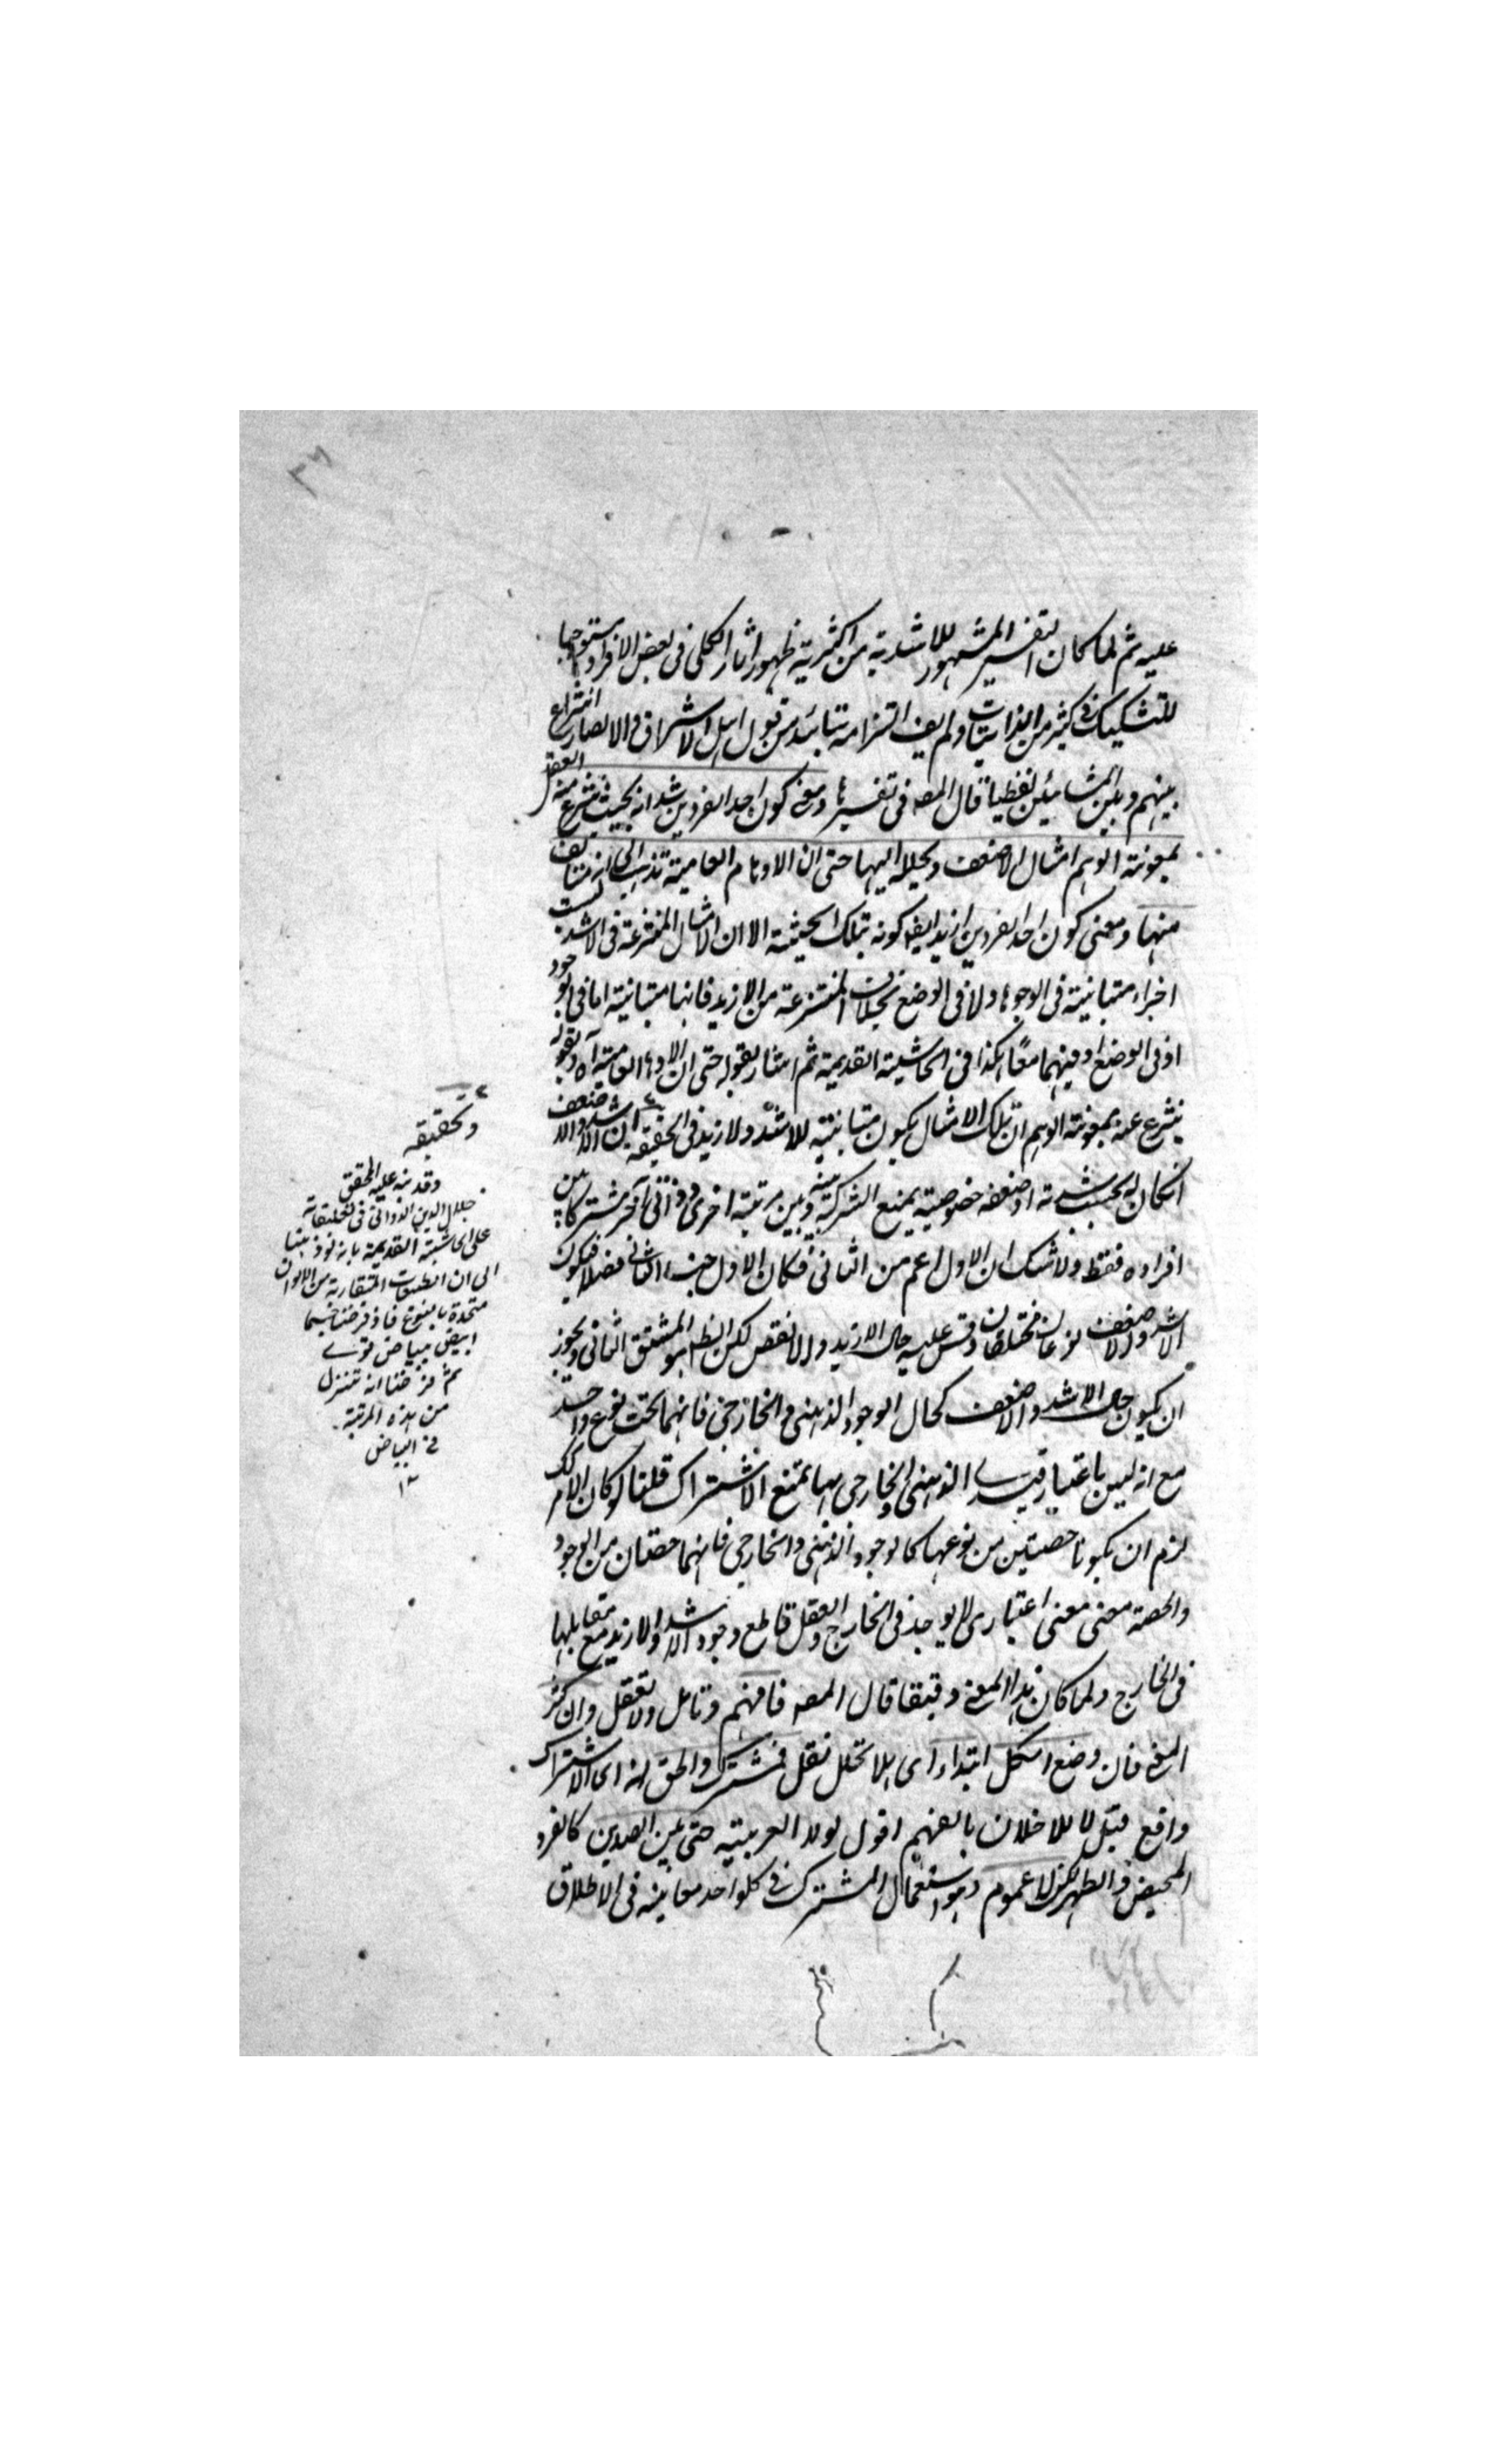 عليه ثم لما كان التفسير المشهور للاشدية من اكثرية ظهور اثار الكلى فى بعض الافراد مستوجبا
للتشكيك فى كثير من الذاتيات ولم يف التزامه من قول اهل الاشراق والانصار انتزاع
بينهم وبين المشائين لفظيا قال المصه فى تفسيرها ومعنى كون احد الفردين اشد انه بحيث ينتزع منه العقل
بمعونة الوهم امثال الاضعف ويحلله اليها حتى ان الاوهام العامية تذهب الى انه متالف
منها ومعنى كون احد الفردين ازيد ايضا كونه بتلك الحيثية الا ان الامثال المنتزعة فى الاشد ليست
اجزاء متباينة فى الوجود ولا فى الوضع بخلاف المنتزعة من الازيد فانها متباينة اما فى الوجود
او فى الوضع او فيهما معًا هكذا فى الحاشية القديمة ثم اشار بقوله حتى ان الاوهام العامية آه وبقوله
ينتزع عنه بمعونة الوهم ان تلك الامثال يكون متباينة للاشد ولازيد فى الحقيقة ان الاشد والاضعف
انكان له بحسب شدته او ضعفه خصوصية يمنع الشركة بينه وبين مرتبة اخرى وذاتى آخر مشترك بين
افراده فقط ولا شك ان الاول اعم من الثانى فكان الاول جنسا والثانى فصلا فيكون
الاشد والاضعف نوعان مختلفان وقس عليه حال الازيد والانقص لكن الظ هو المشتق الثانى ويجوز
ان يكون حال الاشد والاضعف كحال الوجود الذهنى والخارجى فانهما تحت نوع واحد
مع انه ليس باعتبار قيد الذهنى والخارجى لهما يمتنع الاشتراك قلنا لو كان الامر كك
لزم ان يكونا حصتين من نوعهما كالوجود الذهنى والخارجى فانهما حصتان من الوجود
والحصة معنى معنى اعتبارى لا يوجد فى الخارج والعقل قاطع وجود الاشد والازيد مع مقابلها
فى الخارج ولما كان هذا المعنى دقيقا قال المصه فافهم وتامل ولا تغفل وان كثر
المعنى فان وضع لكل ابتداء اى بلا تخلل نقل فمشترك والحق انه اى الاشتراك
واقع قيل لا للاخلال بالفهم اقول لولا العربية حتى بين الضدين كالقرء
للحيض والطهر لكن لا عموم وهو استعمال المشترك فى كلواحد معانيه فى الاطلاق
وتحقيقه
وقد نبه عليه المحقق
جلال الدين الدوانى فى تعليقاته
على الحاشية القديمة بانه لو ذهبنا
الى ان الطبقات المتقاربة من الالوان
متحدة بالنوع فاذا فرضنا جسما
ابيض ببياض قوى
ثم فرضنا انه تنزل
من هذه المرتبة
فى البياض
١٢